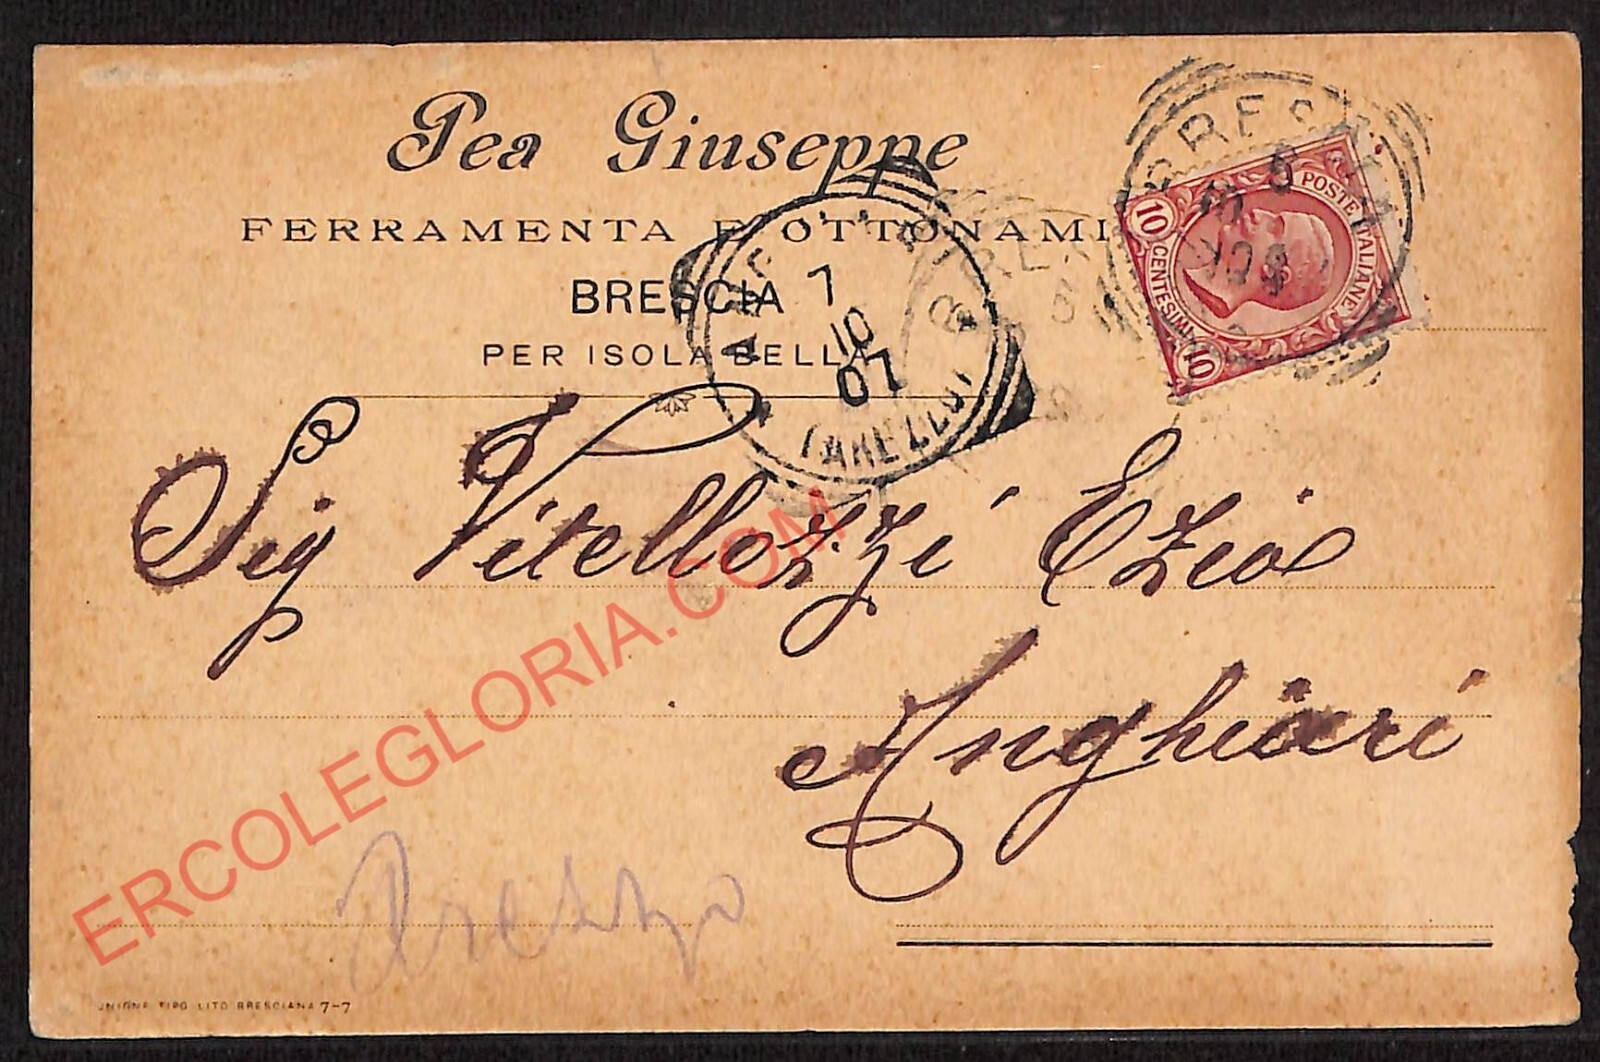 Pea Giuseppe
FERRAMENTA E OTTONAMI
BRESCIA
PER ISOLA BELLA
BRESCIA
POSTE ITALIANE
10 CENTESIMI 10
7
10
07
Sig Vitellozzi Ezio
Anghiari
ERCOLEGLORIA.COM
UNIONE TIPO LITO BRESCIANA 7-7